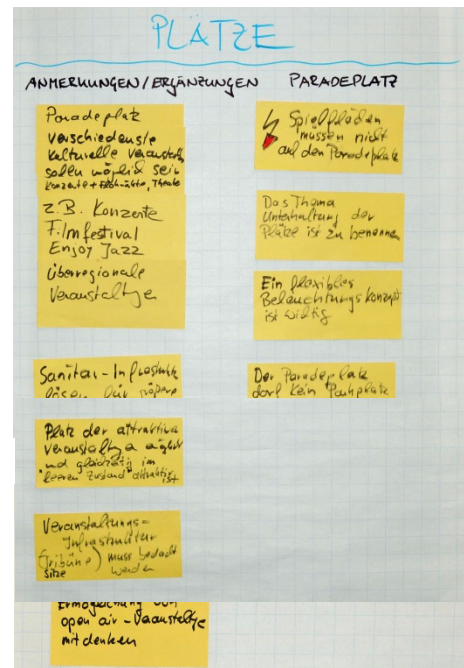 PLÄTZE
ANMERKUNGEN/ERGÄNZUNGEN
Paradeplatz
verschiedenste
kulturelle
sollen möglich sein
Konzerte + Theater
z.B. Konzerte
Filmfestival
Enjoy Jazz
überregionale
Sanitär-Infrastruktur
lösen für größere
Platz der attraktiv
und gleichzeitig im
"leeren Zustand" attraktiv ist
Veranstaltungs=
Infrastruktur
(Tribüne) muss bedacht
Sitze werden
Ermöglichung von
open air - 
mit denken
PARADEPLATZ
Spielflächen
müssen nicht
auf den Paradeplatz
Das Thema
Unterhaltung der
Plätze ist zu benennen
Ein flexibles
Beleuchtungskonzept
ist wichtig
Der Paradeplatz
darf kein Parkplatz